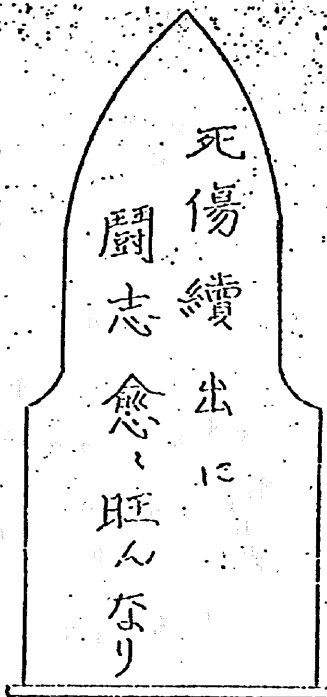 死傷續出に
鬪志愈〻旺んなり